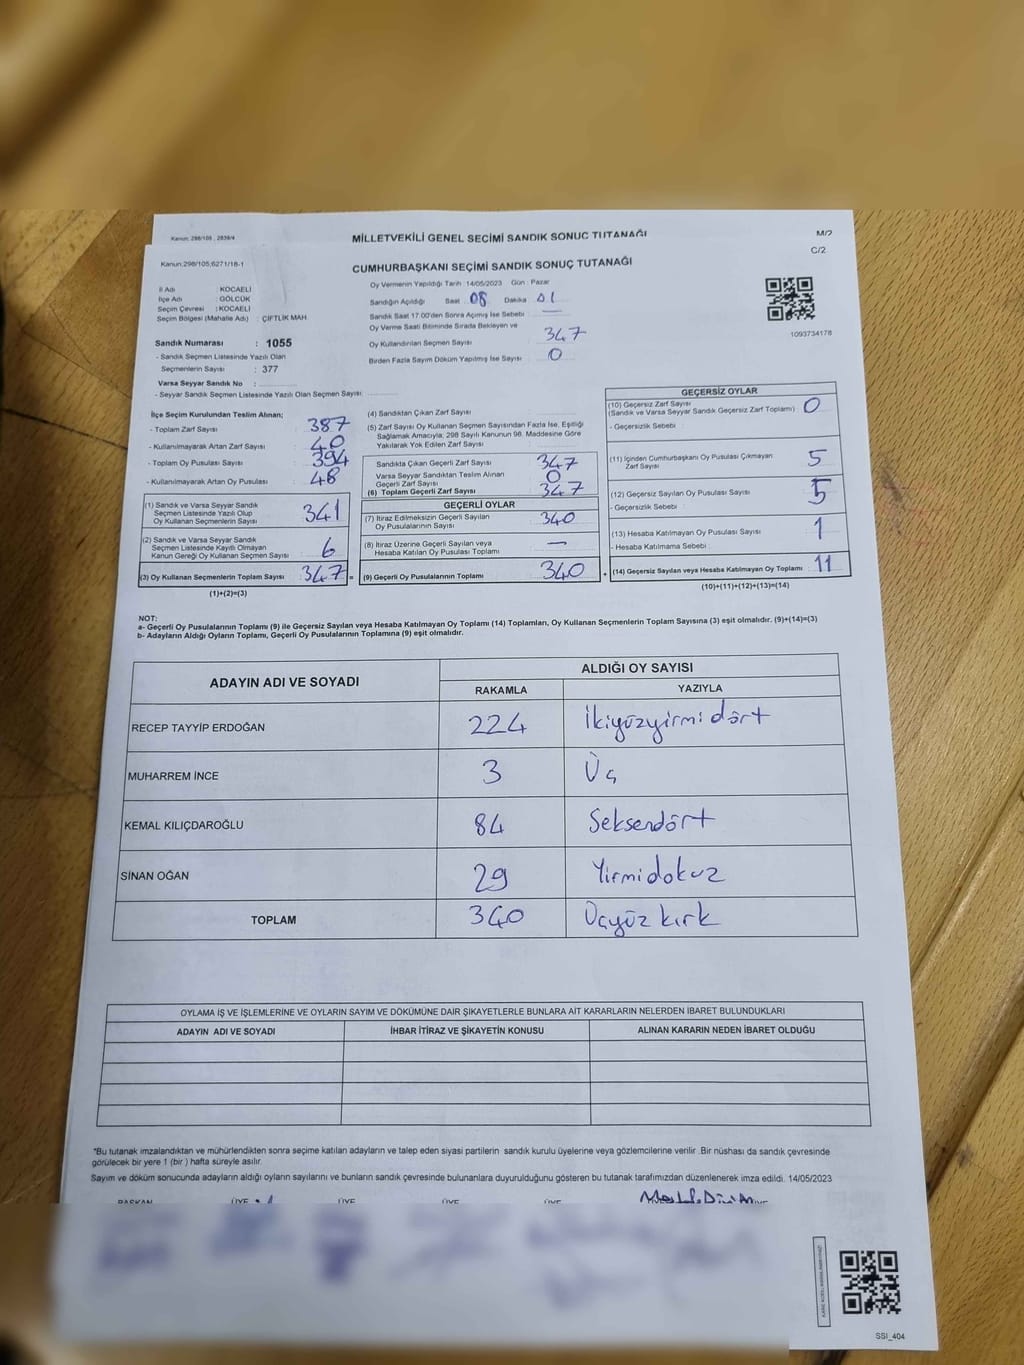 Kanun: 298/105 , 2839/4
MİLLETVEKİLİ GENEL SEÇİMİ SANDIK SONUÇ TUTANAĞI
M/2
Kanun:298/105;6271/18-1
CUMHURBAŞKANI SEÇİMİ SANDIK SONUÇ TUTANAĞI
C/2
İl Adı : KOCAELİ
İlçe Adı : GÖLCÜK
Seçim Çevresi : KOCAELİ
Seçim Bölgesi (Mahalle Adı) : ÇİFTLİK MAH.
Sandık Numarası : 1055
- Sandık Seçmen Listesinde Yazılı Olan
Seçmenlerin Sayısı : 377
Varsa Seyyar Sandık No :
- Seyyar Sandık Seçmen Listesinde Yazılı Olan Seçmen Sayısı :
Oy Vermenin Yapıldığı Tarih :14/05/2023 Gün : Pazar
Sandığın Açıldığı Saat 08 Dakika 01
Sandık Saat 17.00'den Sonra Açılmış İse Sebebi : —
Oy Verme Saati Bitiminde Sırada Bekleyen ve
Oy Kullandırılan Seçmen Sayısı 347
Birden Fazla Sayım Döküm Yapılmış İse Sayısı : 0
1093734178
İlçe Seçim Kurulundan Teslim Alınan;
- Toplam Zarf Sayısı : 387
- Kullanılmayarak Artan Zarf Sayısı : 40
- Toplam Oy Pusulası Sayısı : 394
- Kullanılmayarak Artan Oy Pusulası : 48
(1) Sandık ve Varsa Seyyar Sandık
Seçmen Listesinde Yazılı Olup
Oy Kullanan Seçmenlerin Sayısı 341
(2) Sandık ve Varsa Seyyar Sandık
Seçmen Listesinde Kayıtlı Olmayan
Kanun Gereği Oy Kullanan Seçmen Sayısı 6
(3) Oy Kullanan Seçmenlerin Toplam Sayısı 347 =
(1)+(2)=(3)
(4) Sandıktan Çıkan Zarf Sayısı :
(5) Zarf Sayısı Oy Kullanan Seçmen Sayısından Fazla İse, Eşitliği
Sağlamak Amacıyla, 298 Sayılı Kanunun 98. Maddesine Göre
Yakılarak Yok Edilen Zarf Sayısı :
Sandıkta Çıkan Geçerli Zarf Sayısı 347
Varsa Seyyar Sandıktan Teslim Alınan
Geçerli Zarf Sayısı 0
(6) Toplam Geçerli Zarf Sayısı 347
GEÇERLİ OYLAR
(7) İtiraz Edilmeksizin Geçerli Sayılan
Oy Pusulalarının Sayısı 340
(8) İtiraz Üzerine Geçerli Sayılan veya
Hesaba Katılan Oy Pusulası Toplamı —
(9) Geçerli Oy Pusulalarının Toplamı 340 +
GEÇERSİZ OYLAR
(10) Geçersiz Zarf Sayısı
(Sandık ve Varsa Seyyar Sandık Geçersiz Zarf Toplamı) 0
- Geçersizlik Sebebi :
(11) İçinden Cumhurbaşkanı Oy Pusulası Çıkmayan
Zarf Sayısı 5
(12) Geçersiz Sayılan Oy Pusulası Sayısı 5
- Geçersizlik Sebebi :
(13) Hesaba Katılmayan Oy Pusulası Sayısı 1
- Hesaba Katılmama Sebebi :
(14) Geçersiz Sayılan veya Hesaba Katılmayan Oy Toplamı 11
(10)+(11)+(12)+(13)=(14)
NOT:
a- Geçerli Oy Pusulalarının Toplamı (9) ile Geçersiz Sayılan veya Hesaba Katılmayan Oy Toplamı (14) Toplamları, Oy Kullanan Seçmenlerin Toplam Sayısına (3) eşit olmalıdır. (9)+(14)=(3)
b- Adayların Aldığı Oyların Toplamı, Geçerli Oy Pusulalarının Toplamına (9) eşit olmalıdır.
ADAYIN ADI VE SOYADI
ALDIĞI OY SAYISI
RAKAMLA YAZIYLA
RECEP TAYYİP ERDOĞAN 224 İkiyüzyirmi dört
MUHARREM İNCE 3 Üç
KEMAL KILIÇDAROĞLU 84 Seksendört
SİNAN OĞAN 29 Yirmidokuz
TOPLAM 340 Üçyüz kırk
OYLAMA İŞ VE İŞLEMLERİNE VE OYLARIN SAYIM VE DÖKÜMÜNE DAİR ŞİKAYETLERLE BUNLARA AİT KARARLARIN NELERDEN İBARET BULUNDUKLARI
ADAYIN ADI VE SOYADI İHBAR İTİRAZ VE ŞİKAYETİN KONUSU ALINAN KARARIN NEDEN İBARET OLDUĞU
*Bu tutanak imzalandıktan ve mühürlendikten sonra seçime katılan adayların ve talep eden siyasi partilerin sandık kurulu üyelerine veya gözlemcilerine verilir .Bir nüshası da sandık çevresinde
görülecek bir yere 1 (bir ) hafta süreyle asılır.
Sayım ve döküm sonucunda adayların aldığı oyların sayılarını ve bunların sandık çevresinde bulunanlara duyurulduğunu gösteren bu tutanak tarafımızdan düzenlenerek imza edildi. 14/05/2023
BAŞKAN ÜYE ÜYE ÜYE ÜYE
SSI_404